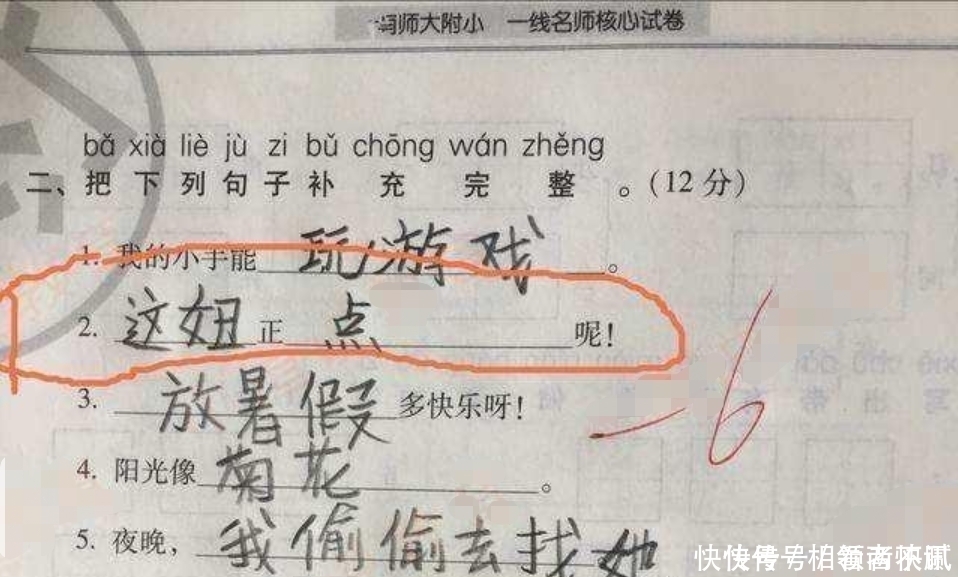 冯师大附小 一线名师核心试卷
bǎ xià liè jù zi bǔ chōng wán zhěng
二、把下列句子补充完整。(12分)
1. 我的小手能玩游戏。
2. 这妞正点呢!
3. 放暑假多快乐呀!
-6
4. 阳光像菊花。
5. 夜晚,我偷偷去找她